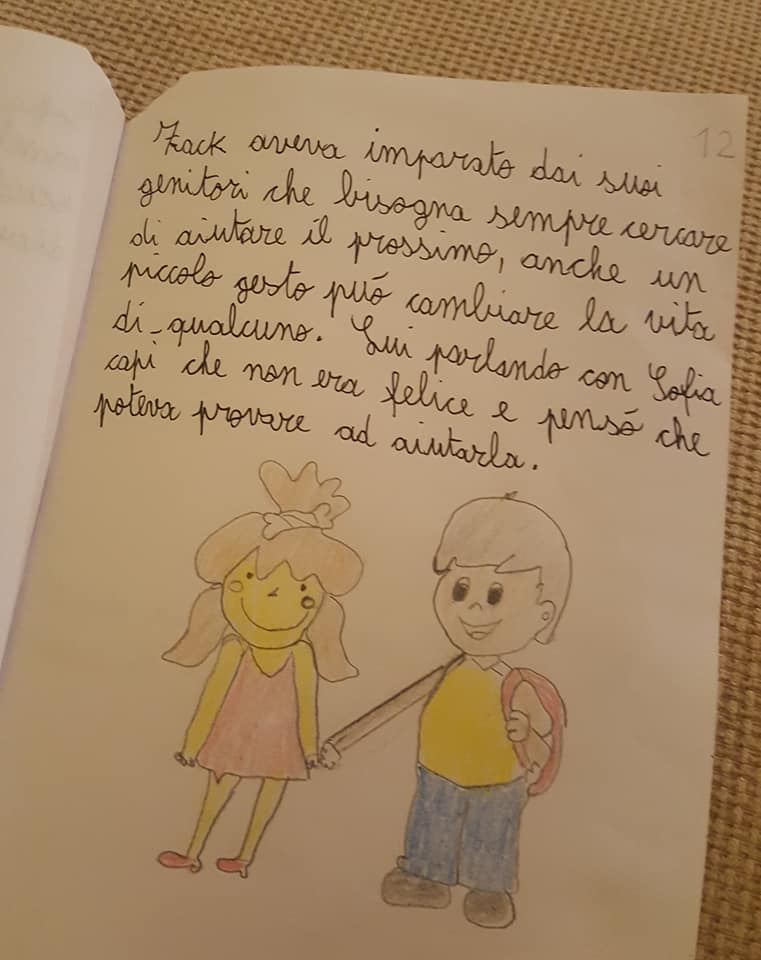 12
Zack aveva imparato dai suoi
genitori che bisogna sempre cercare
di aiutare il prossimo, anche un
piccolo gesto puó cambiare la vita
di qualcuno. Lui parlando con Sofia
capì che non era felice e pensó che
poteva provare ad aiutarla.